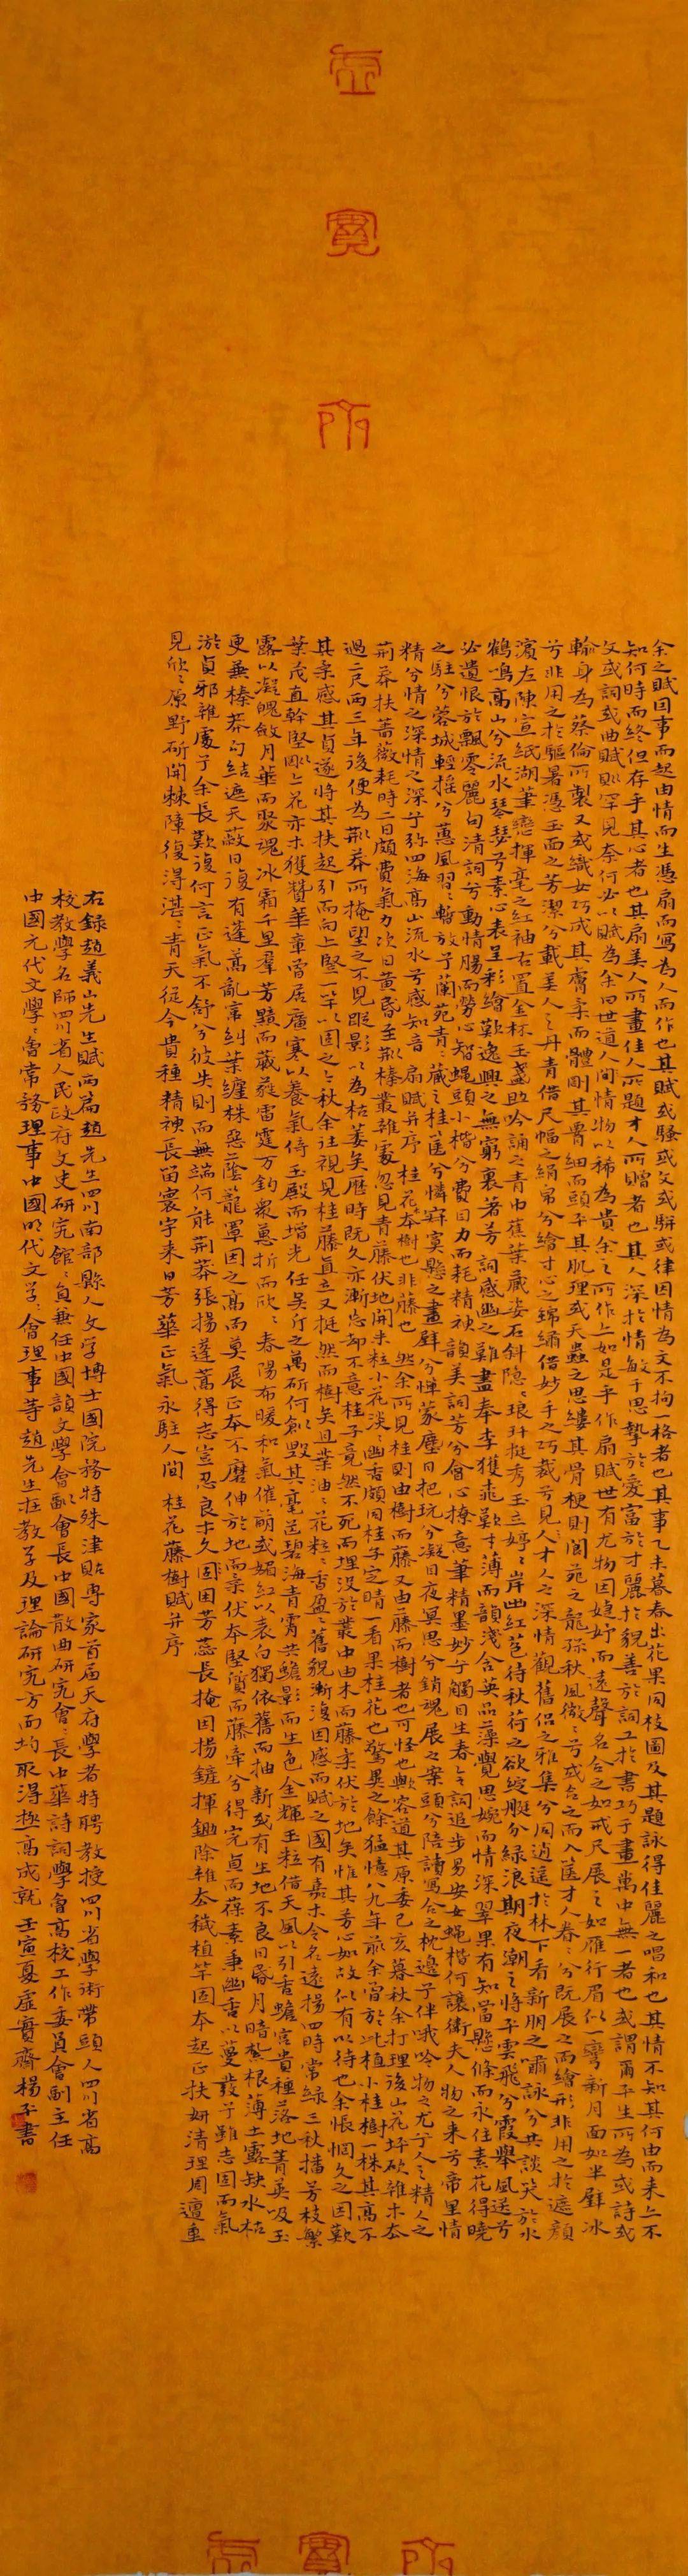 虛
實
所
余之賦因事而起由情而生憑扇而寫為人而作也其賦或騷或文或駢或律因情為文不拘一格者也其事乙未暮春出花果同枝圖及其題詠得佳麗之唱和也其情不知其何由而來亦不
知何時而終但存乎其心者也其扇美人所畫佳人所題才人所贈者也其人深於情敏于思摯於愛富於才麗於貌善於詞工於書巧于畫萬中無一者也或謂爾平生所為或詩或
文或詞或曲賦則罕見奈何必以賦為余曰世道人間情物以稀為貴余之所作亦如是乎作扇賦世有尤物因婕妤而遠聲名合之如戒尺展之如雁行眉似一彎新月面如半璧冰
輪身為蔡倫所製又或織女巧成其膚柔而體剛其骨細而頭平其肌理或天蟲之思縷其骨梗則閬苑之龍孫秋風微微兮或合之而入匧才人眷眷兮既展之而繪形非用之於遮顏
兮非用之於驅暑憑玉面之芳潔兮載美人之丹青借尺幅之絹帛兮繪寸心之錦繡借妙手之巧裁兮見才人之深情觀舊侶之雅集兮同逍遙於林下看新朋之嘯詠兮共談笑於水
濱左陳宣紙湖筆戀揮毫之紅袖右置金杯玉盞助吟誦之青巾蕉葉藏姿石斜隱隱琅玕挺秀玉立婷婷岸幽紅苞待秋荷之欲綻艇分綠浪期夜潮之將平雲飛兮霞舉風送兮
鶴鳴高山兮流水琴瑟兮素心表呈彩繪歎逸興之無窮裏著芳詞感幽之難盡奉李獲乖歎才薄而韻淺含英品藻覺思婉而情深翠果有知當懸條而永住素花得曉
必遺恨於飄零麗句清詞兮動情腸而勞心智蠅頭小楷兮費目力而耗精神韻美詞芳兮會心撩意筆精墨妙兮觸目生春令詞追步易安女蠅楷何讓衛夫人物之來兮帝里情
之駐兮蓉城輕搖兮蕙風習習暫放于蘭苑青青藏之桂匧兮憐寂寞懸之畫壁兮憚蒙塵日把玩兮凝目夜冥思兮銷魂展之案頭兮陪讀寫合之枕邊子伴哦吟物之尤兮人之精人之
精兮情之深情之深于弥四海高山流水兮感知音 扇賦并序 桂花本樹也非藤也 然余所見桂則由樹而藤又由藤而樹者也可怪也歟容道其原委己亥暮秋余打理後山花圩砍雜木去
荊莽扶薔薇耗時二日頗費氣力次日黃昏至荊榛叢雜處忽見青藤伏地開米粒小花淡淡幽香頗因桂子定睛一看果桂花也驚異之餘猛憶八九年前余曾於此植小桂樹一株其高不
過二尺兩三年後便為荊莽所掩望之不見蹤影以為枯萎矣歷時既久亦漸忘卻不意桂子竟然不死而埋沒於叢中由木而藤柔伏於地矣惟其芳心如故似有以待也余悵惘久之因歎
其柔感其貞遂將其扶起引而向上豎一竿以固之今秋余往視見桂藤直立又挺然而樹矣且葉油油花粒粒香盈盈舊貌漸復因感而賦之國有嘉木令名遠揚四時常綠三秋播芳枝繁
葉茂直幹堅剛上花亦木獲贊華章曾居廣寒以養氣倚玉殿而增光任吳斤之萬斫何創毀其毫芒碧海青霄共蟾影而生色金輝玉粒借天風以引香蟾宮貴種落地菁英吸玉
露以凝魄斂月華而聚魂冰霜千里群芳黯而葳蕤雷霆万鈞眾蔥折而欣欣春陽布暖和氣催萌或媚紅以表白獨依舊而抽新或有生地不良日昏月暗紮根薄土露缺水枯
更兼榛莽勾結遮天蔽日復有蓬蒿亂常糾葉纏株惡蔭籠罩因之高而莫展正本不磨伸於地而柔伏本堅質而藤牽兮得完貞而葆素秉幽香以蔓發于雖志固而氣
淤貞邪雜處于余長歎復何言正氣不舒兮彼失則而無端何能荊莽張揚蓬蒿得志豈忍良才久困困芳蕊長掩因揚鏟揮鋤除雜去穢植竿固本起正扶妍清理周邅重
見欣欣原野斫開棘障復得湛湛青天從今貴種精神長留寰宇來日芳華正氣永駐人間 桂花藤樹賦并序
右錄趙義山先生賦兩篇趙先生四川南部縣人文学博士國院務特殊津貼專家首屆天府學者特聘教授四川省學術帶頭人四川省高
校教學名師四川省人民政府文史研究館館員兼任中國韻文學會副會長中國散曲研究會會長中華詩詞學會高校工作委員會副主任
中國元代文學學會常務理事中國明代文学學會理事等趙先生在教学及理論研究方面均取得極高成就 壬寅夏虛實齋楊子書
虛 實 所